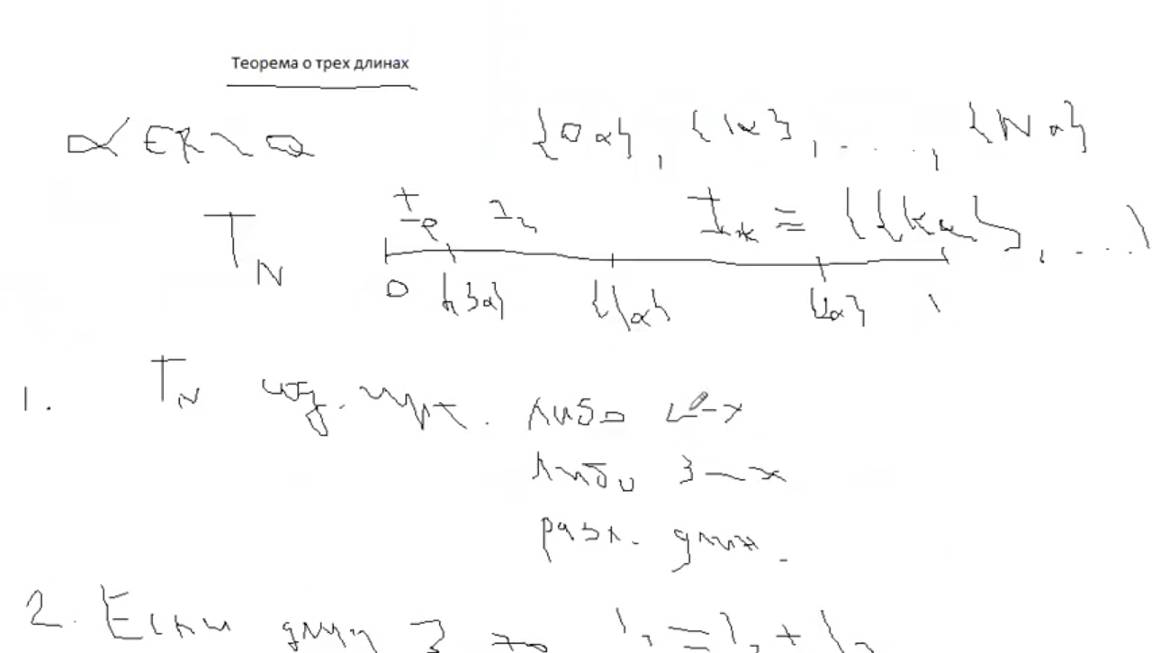 Теорема о трех длинах
α ∈ R \ Q {0α}, {1α}, ...., {Nα}
T_N
I_k = ({kα}, ...)
0 {3α} {1α} {2α} 1
1. T_N либо 2-х
либо 3-х
разл. длин.
2. Если длин 3 то